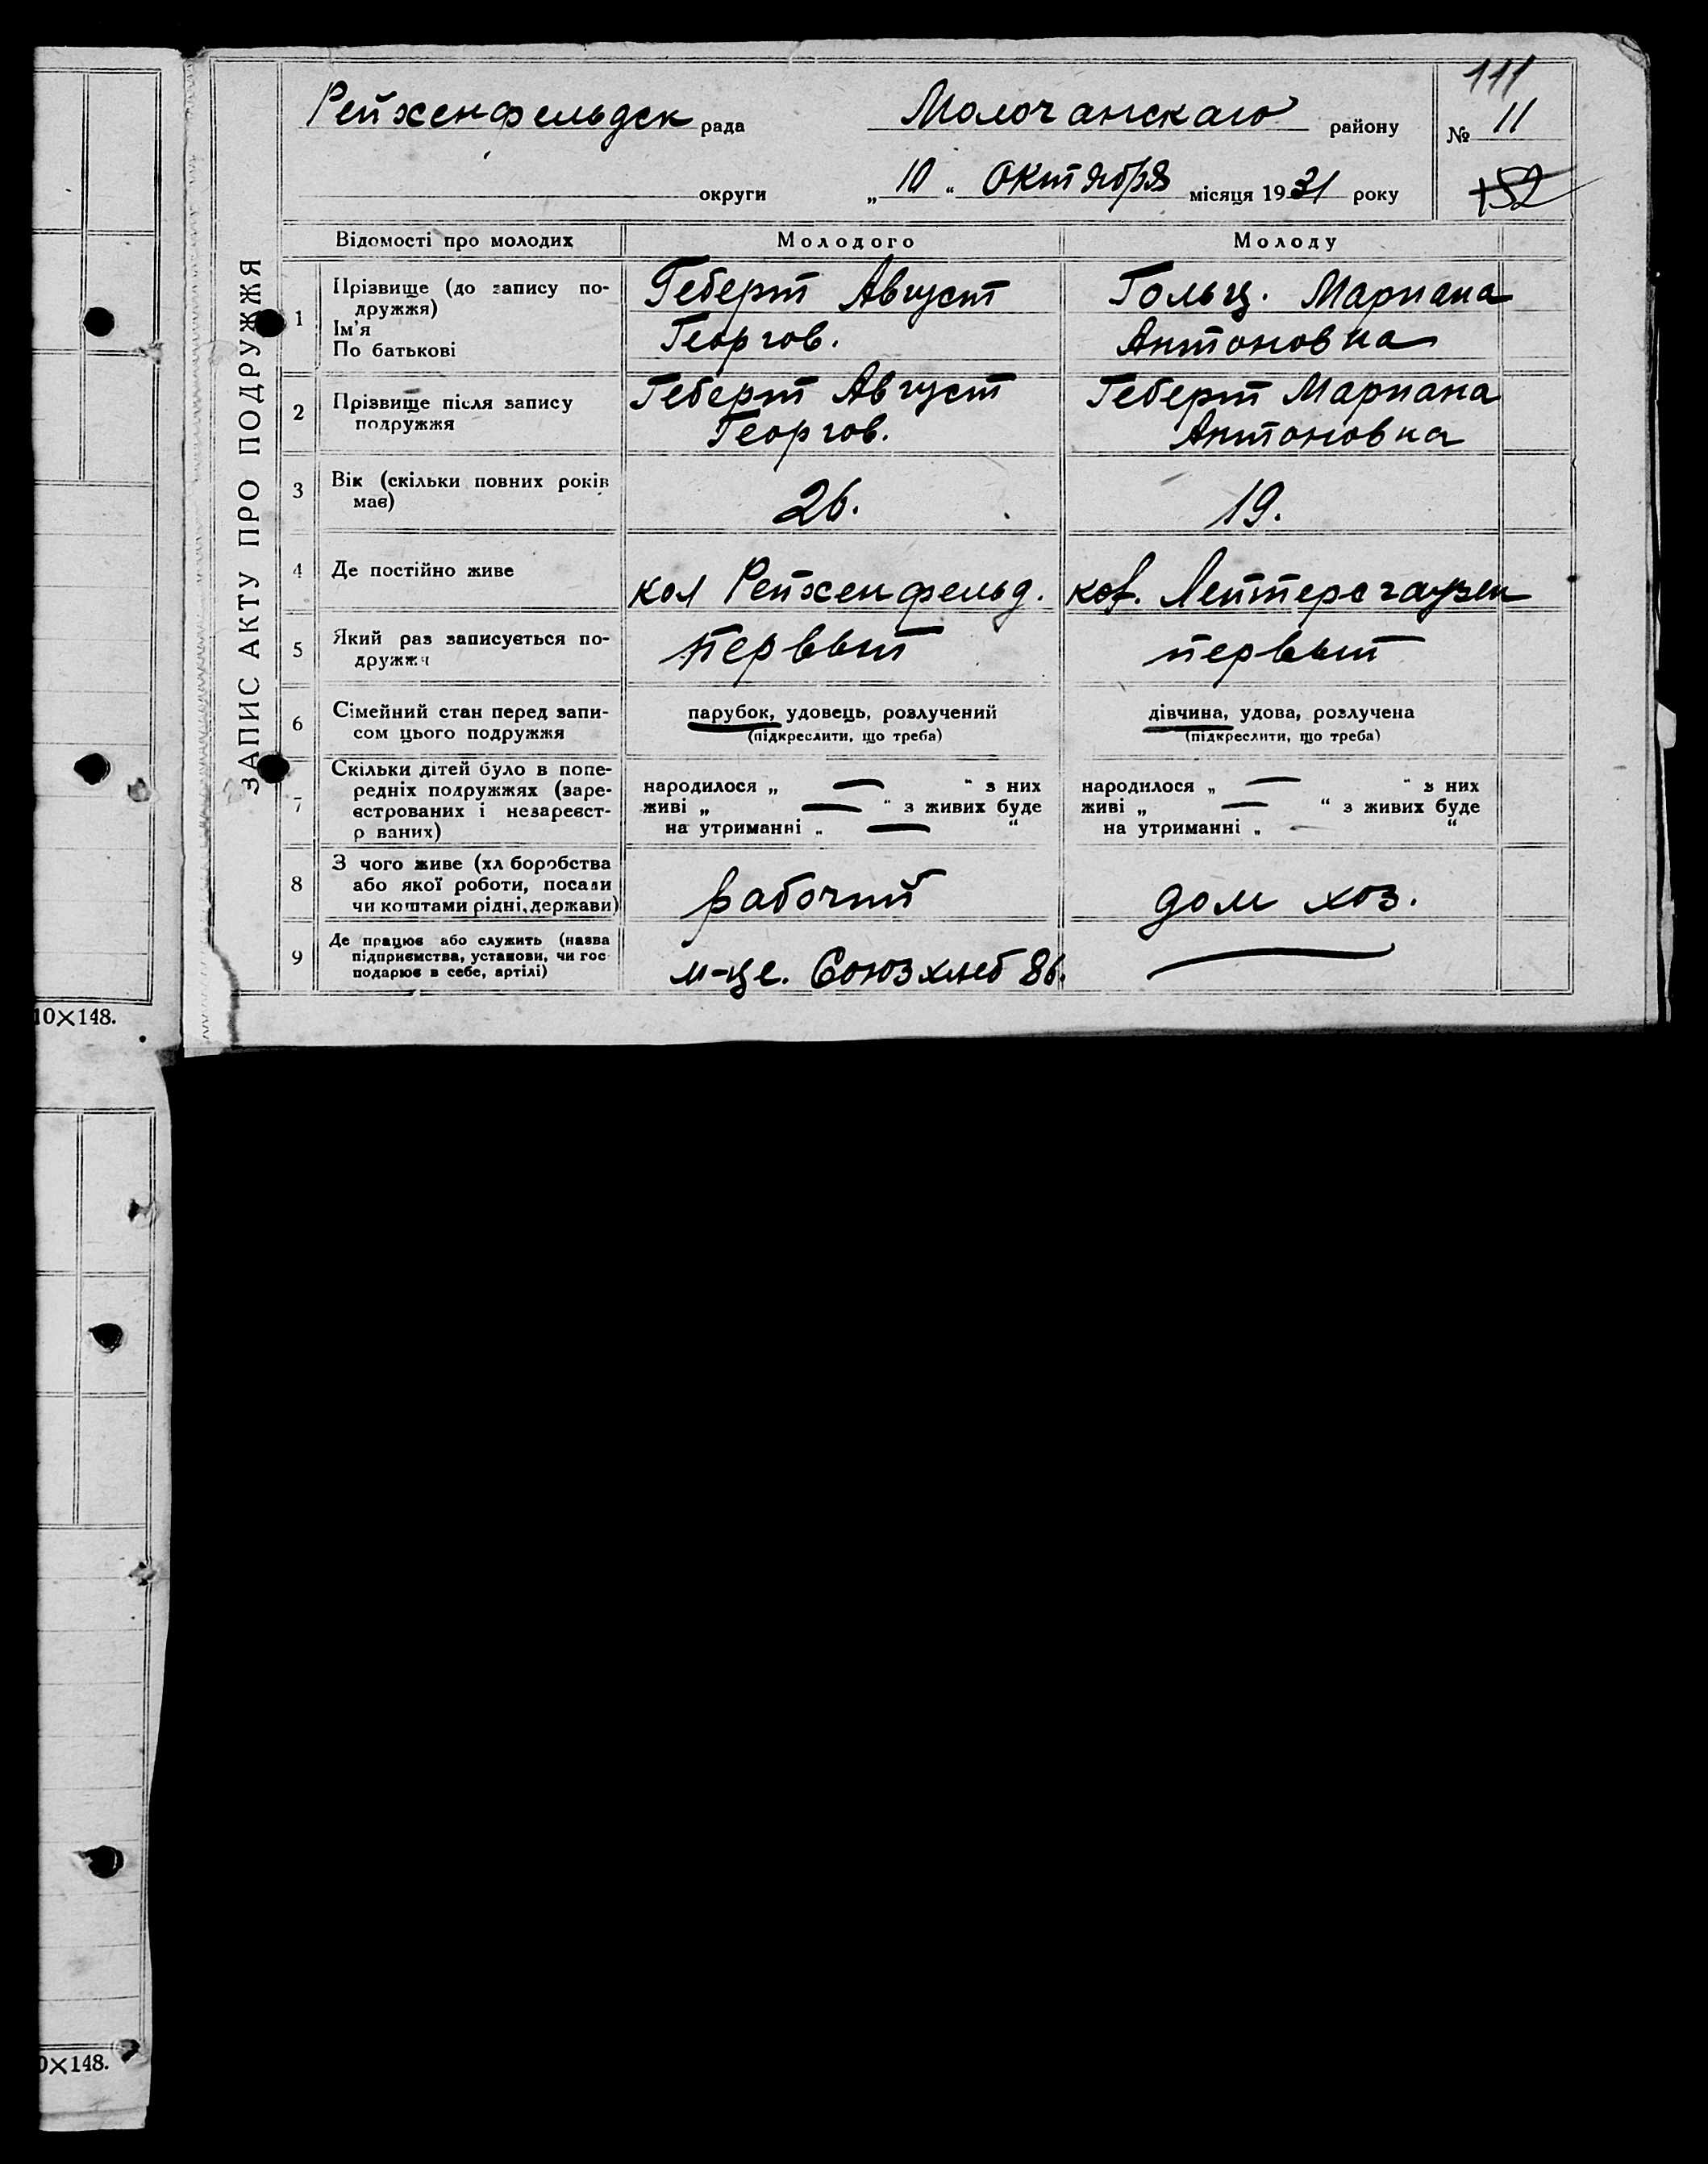 111
Рейхенфельдск рада Молочанскаго району № 11
округи „10“ Октября місяця 1931 року 152
ЗАПИС АКТУ ПРО ПОДРУЖЖЯ
Відомості про молодих Молодого Молоду
1 Прізвище (до запису по-
дружжя)
Ім'я
По батькові
Геберт Август
Георгов.
Гольц. Мариана
Антоновна
2 Прізвище після запису
подружжя
Геберт Август
Георгов.
Геберт Мариана
Антоновна
3 Вік (скільки повних років
має)
26. 19.
4 Де постійно живе
кол Рейхенфельд. кол. Лейтерсгаузен
5 Який раз записується по-
дружжя
первый первый
6 Сімейний стан перед запи-
сом цього подружжя
парубок, удовець, розлучений
(підкреслити, що треба)
дівчина, удова, розлучена
(підкреслити, що треба)
7 Скільки дітей було в попе-
редніх подружжях (заре-
єстрованих і незареєст-
р ваних)
народилося „ — “ з них
живі „ — “ з живих буде
на утриманні „ — “
народилося „ — “ з них
живі „ — “ з живих буде
на утриманні „ — “
8 З чого живе (хл боробства
або якої роботи, посади
чи коштами рідні, держави)
рабочий дом хоз.
9 Де працює або служить (назва
підприємства, установи, чи гос
подарює в себе, артілі)
м-це. Союзхлеб 86. —
10×148.
0×148.